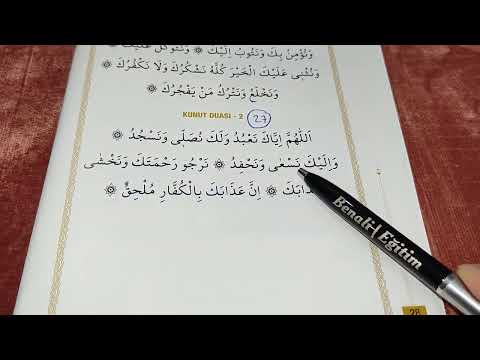 وَنُؤْمِنُ بِكَ وَنَتُوبُ اِلَيْكَ ۞ وَنَتَوَكَّلُ عَلَيْكَ
وَنُثْنِى عَلَيْكَ الْخَيْرَ كُلَّهُ نَشْكُرُكَ وَلَا نَكْفُرُكَ
وَنَخْلَعُ وَنَتْرُكُ مَنْ يَفْجُرُكَ ۞
KUNUT DUASI - 2 27
اَللّٰهُمَّ اِيَّاكَ نَعْبُدُ وَلَكَ نُصَلِّى وَنَسْجُدُ ۞
وَاِلَيْكَ نَسْعٰى وَنَحْفِدُ ۞ نَرْجُو رَحْمَتَكَ وَنَخْشٰى
۞ اِنَّ عَذَابَكَ بِالْكُفَّارِ مُلْحِقٌ ۞
Benali Eğitim
28